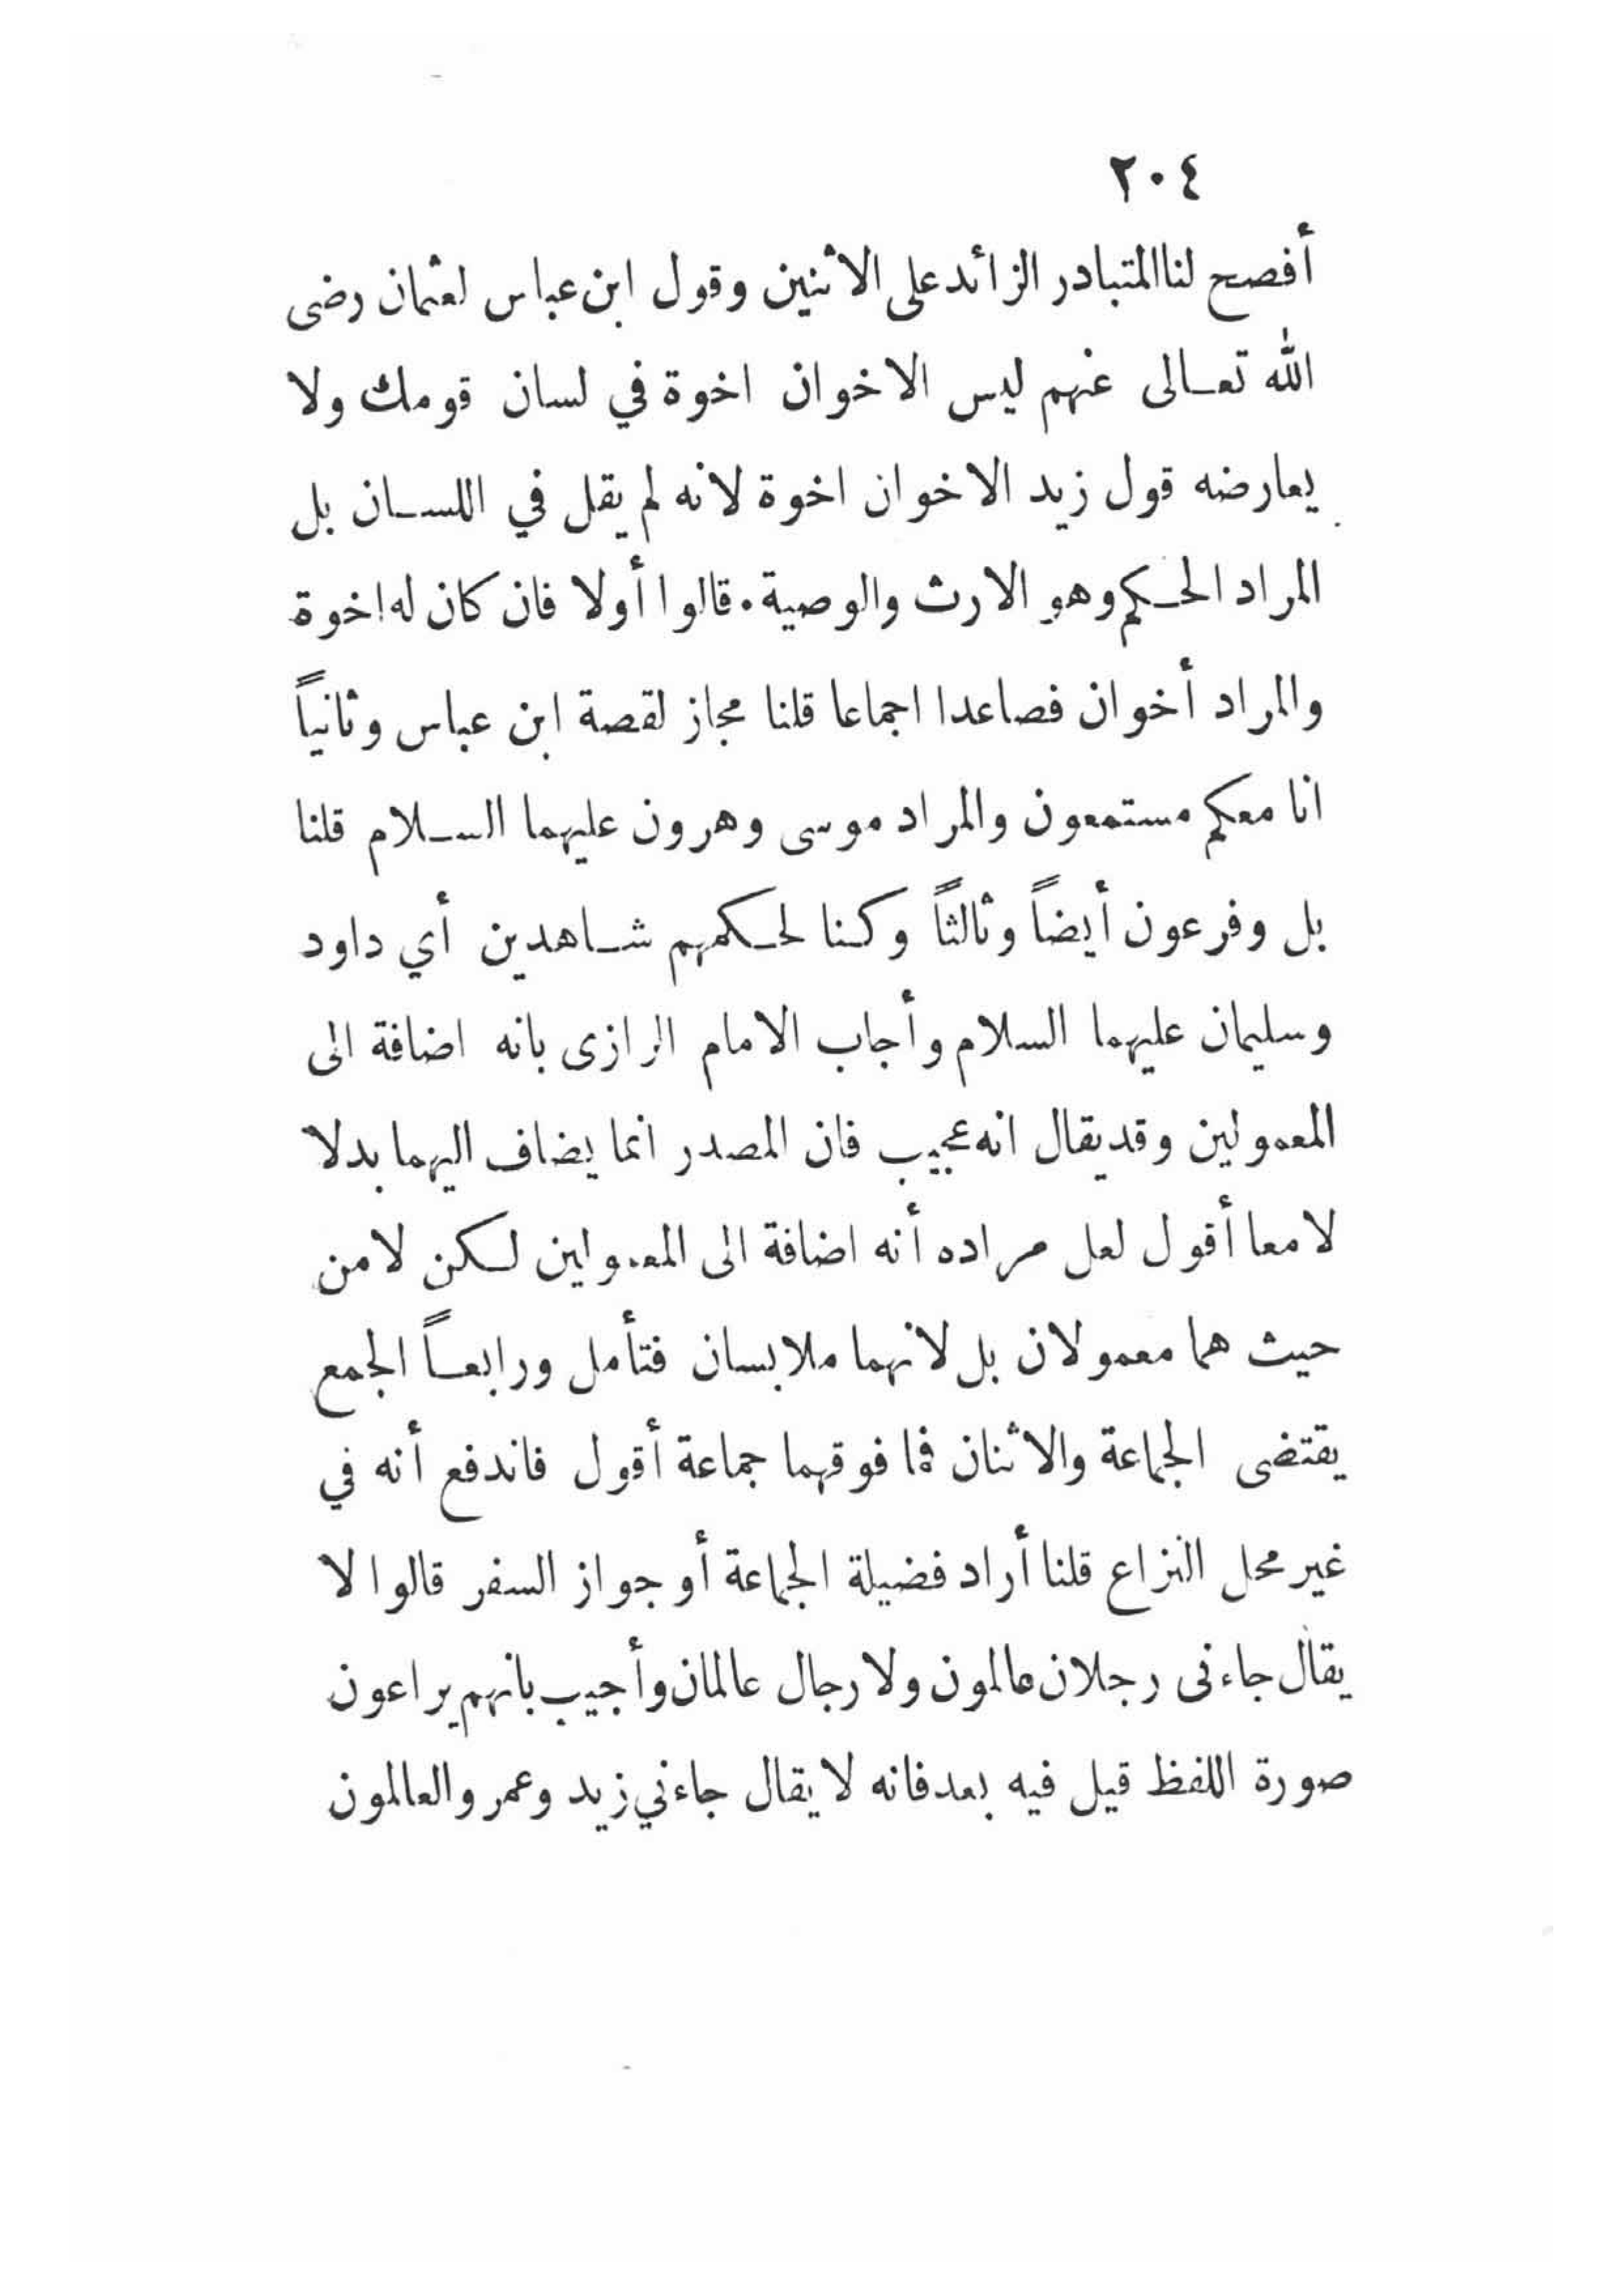 ٢٠٤
أفصح لنا المتبادر الزائد على الاثنين وقول ابن عباس لعثمان رضى
الله تعالى عنهم ليس الاخوان اخوة في لسان قومك ولا
يعارضه قول زيد الاخوان اخوة لانه لم يقل في اللسان بل
المراد الحكم وهو الارث والوصية . قالوا أولا فان كان له اخوة
والمراد أخوان فصاعدا اجماعا قلنا مجاز لقصة ابن عباس وثانياً
انا معكم مستمعون والمراد موسى وهرون عليهما السلام قلنا
بل وفرعون أيضاً وثالثاً وكنا لحكمهم شاهدين أي داود
وسليمان عليهما السلام وأجاب الامام الرازى بانه اضافة الى
المعمولين وقد يقال انه عجيب فان المصدر انما يضاف اليهما بدلا
لا معا أقول لعل مراده أنه اضافة الى المعمولين لكن لا من
حيث هما معمولان بل لانهما ملابسان فتأمل ورابعاً الجمع
يقتضى الجماعة والاثنان فما فوقهما جماعة أقول فاندفع أنه في
غير محل النزاع قلنا أراد فضيلة الجماعة أو جواز السفر قالوا لا
يقال جاءنى رجلان عالمون ولا رجال عالمان وأجيب بانهم يراعون
صورة اللفظ قيل فيه بعد فانه لا يقال جاءني زيد وعمر والعالمون